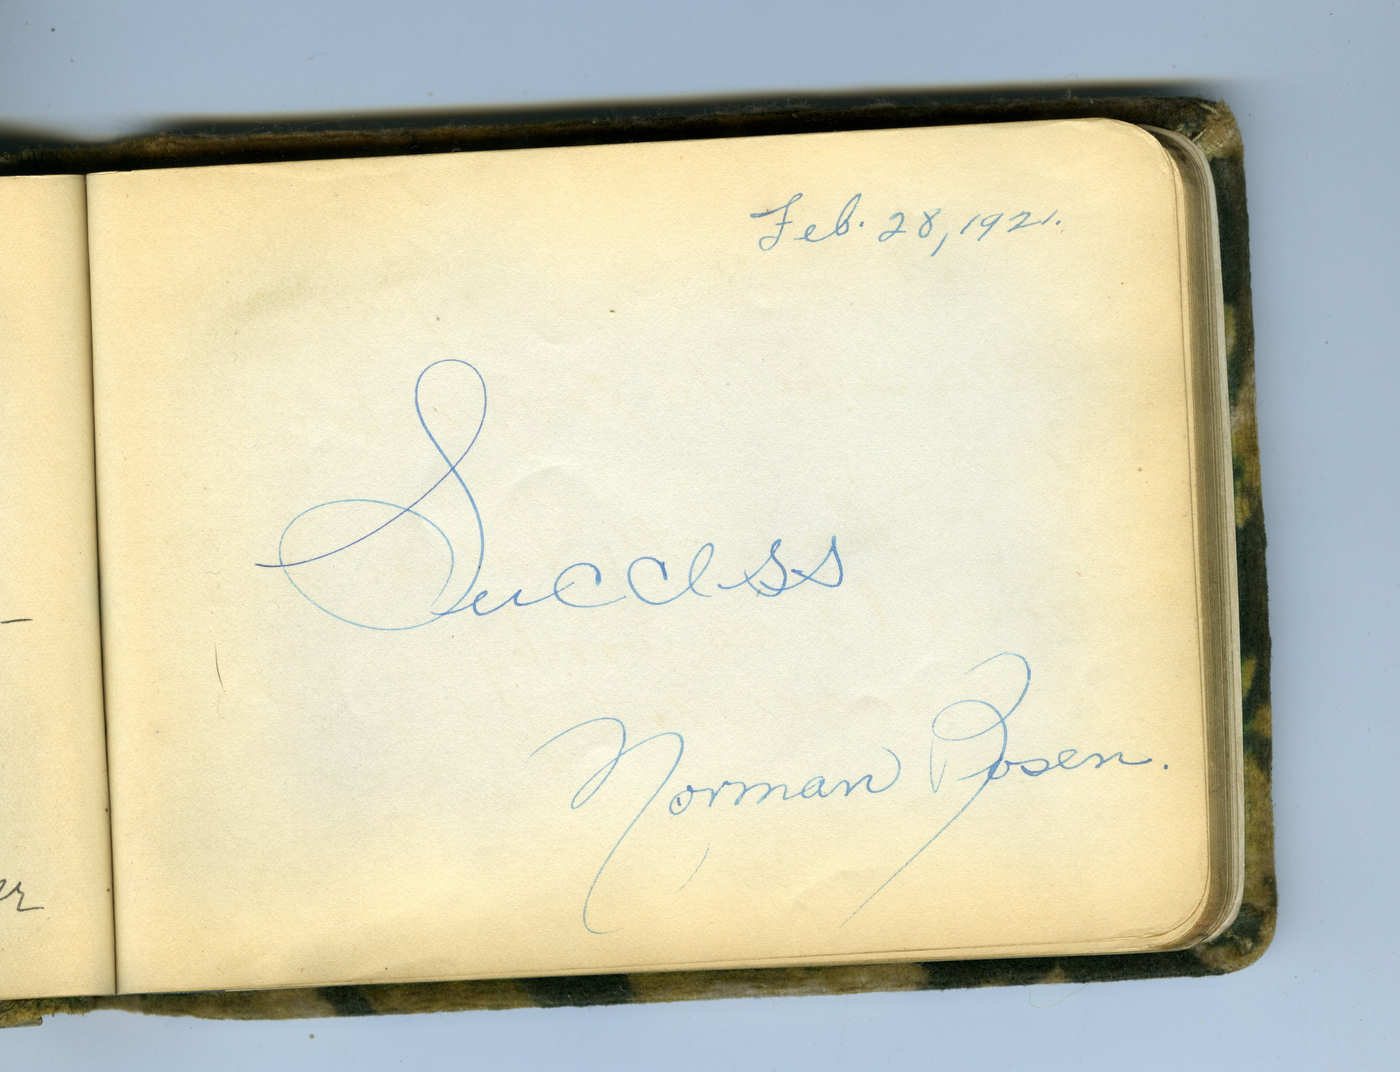 er
Feb. 28, 1921.
Success
Norman Rosen.